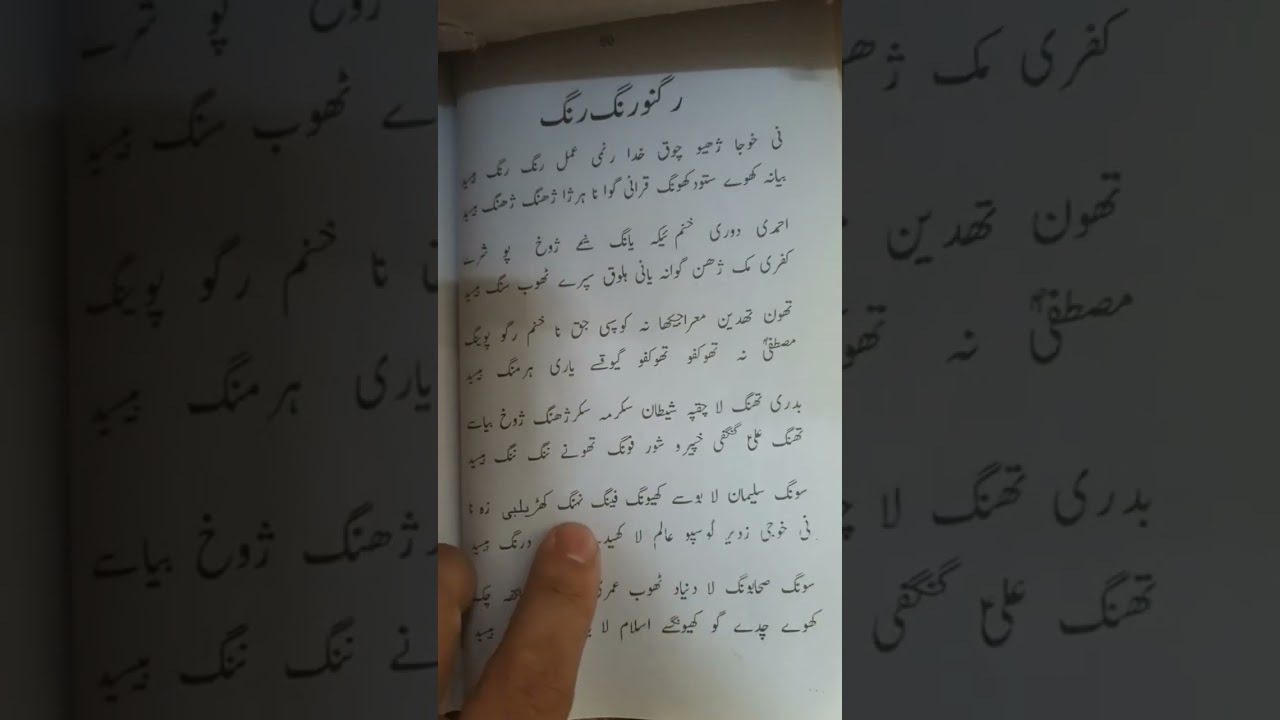 رگنورنگ رنگ
نی خوجا ژھیو چوق خدا رنمی عمل رنگ رنگ بیسید
بیانہ کھوے ستودکھونگ قرانی گوا نا ہرژا ژھنگ ژھنگ بیسید
احمدی دوری خنم ئیکہ یانگ ژوخ پو شرے
کفری مک ژھن گوانہ یانی ہلوق سپرے ٹھوب سنگ بیسید
تھون تھدین معراجیکھا نہ کوسپی جق نا خنم رگو پوینگ
مصطفیؐ نہ تھوکفو تھوکفو گیوقسے یاری ہرمنگ بیسید
بدری تھنگ لا چقپہ شیطان سکرمہ سکرژھنگ ژوخ بیاسے
تھنگ علیؑ گنگفی خپیرو شور فونگ تھونے ننگ ننگ بیسید
سونگ سلیمان لا بوسے کھیونگ فینگ نہنگ کھڑیلبی زہ نا
نی خوجی زدیر لوسپو عالم لا کھید درنگ بیسید
سونگ صحابونگ لا دنیاد ٹھوب عمری چک
کھوے چدے گو کھیونگسے اسلام لا بیسید